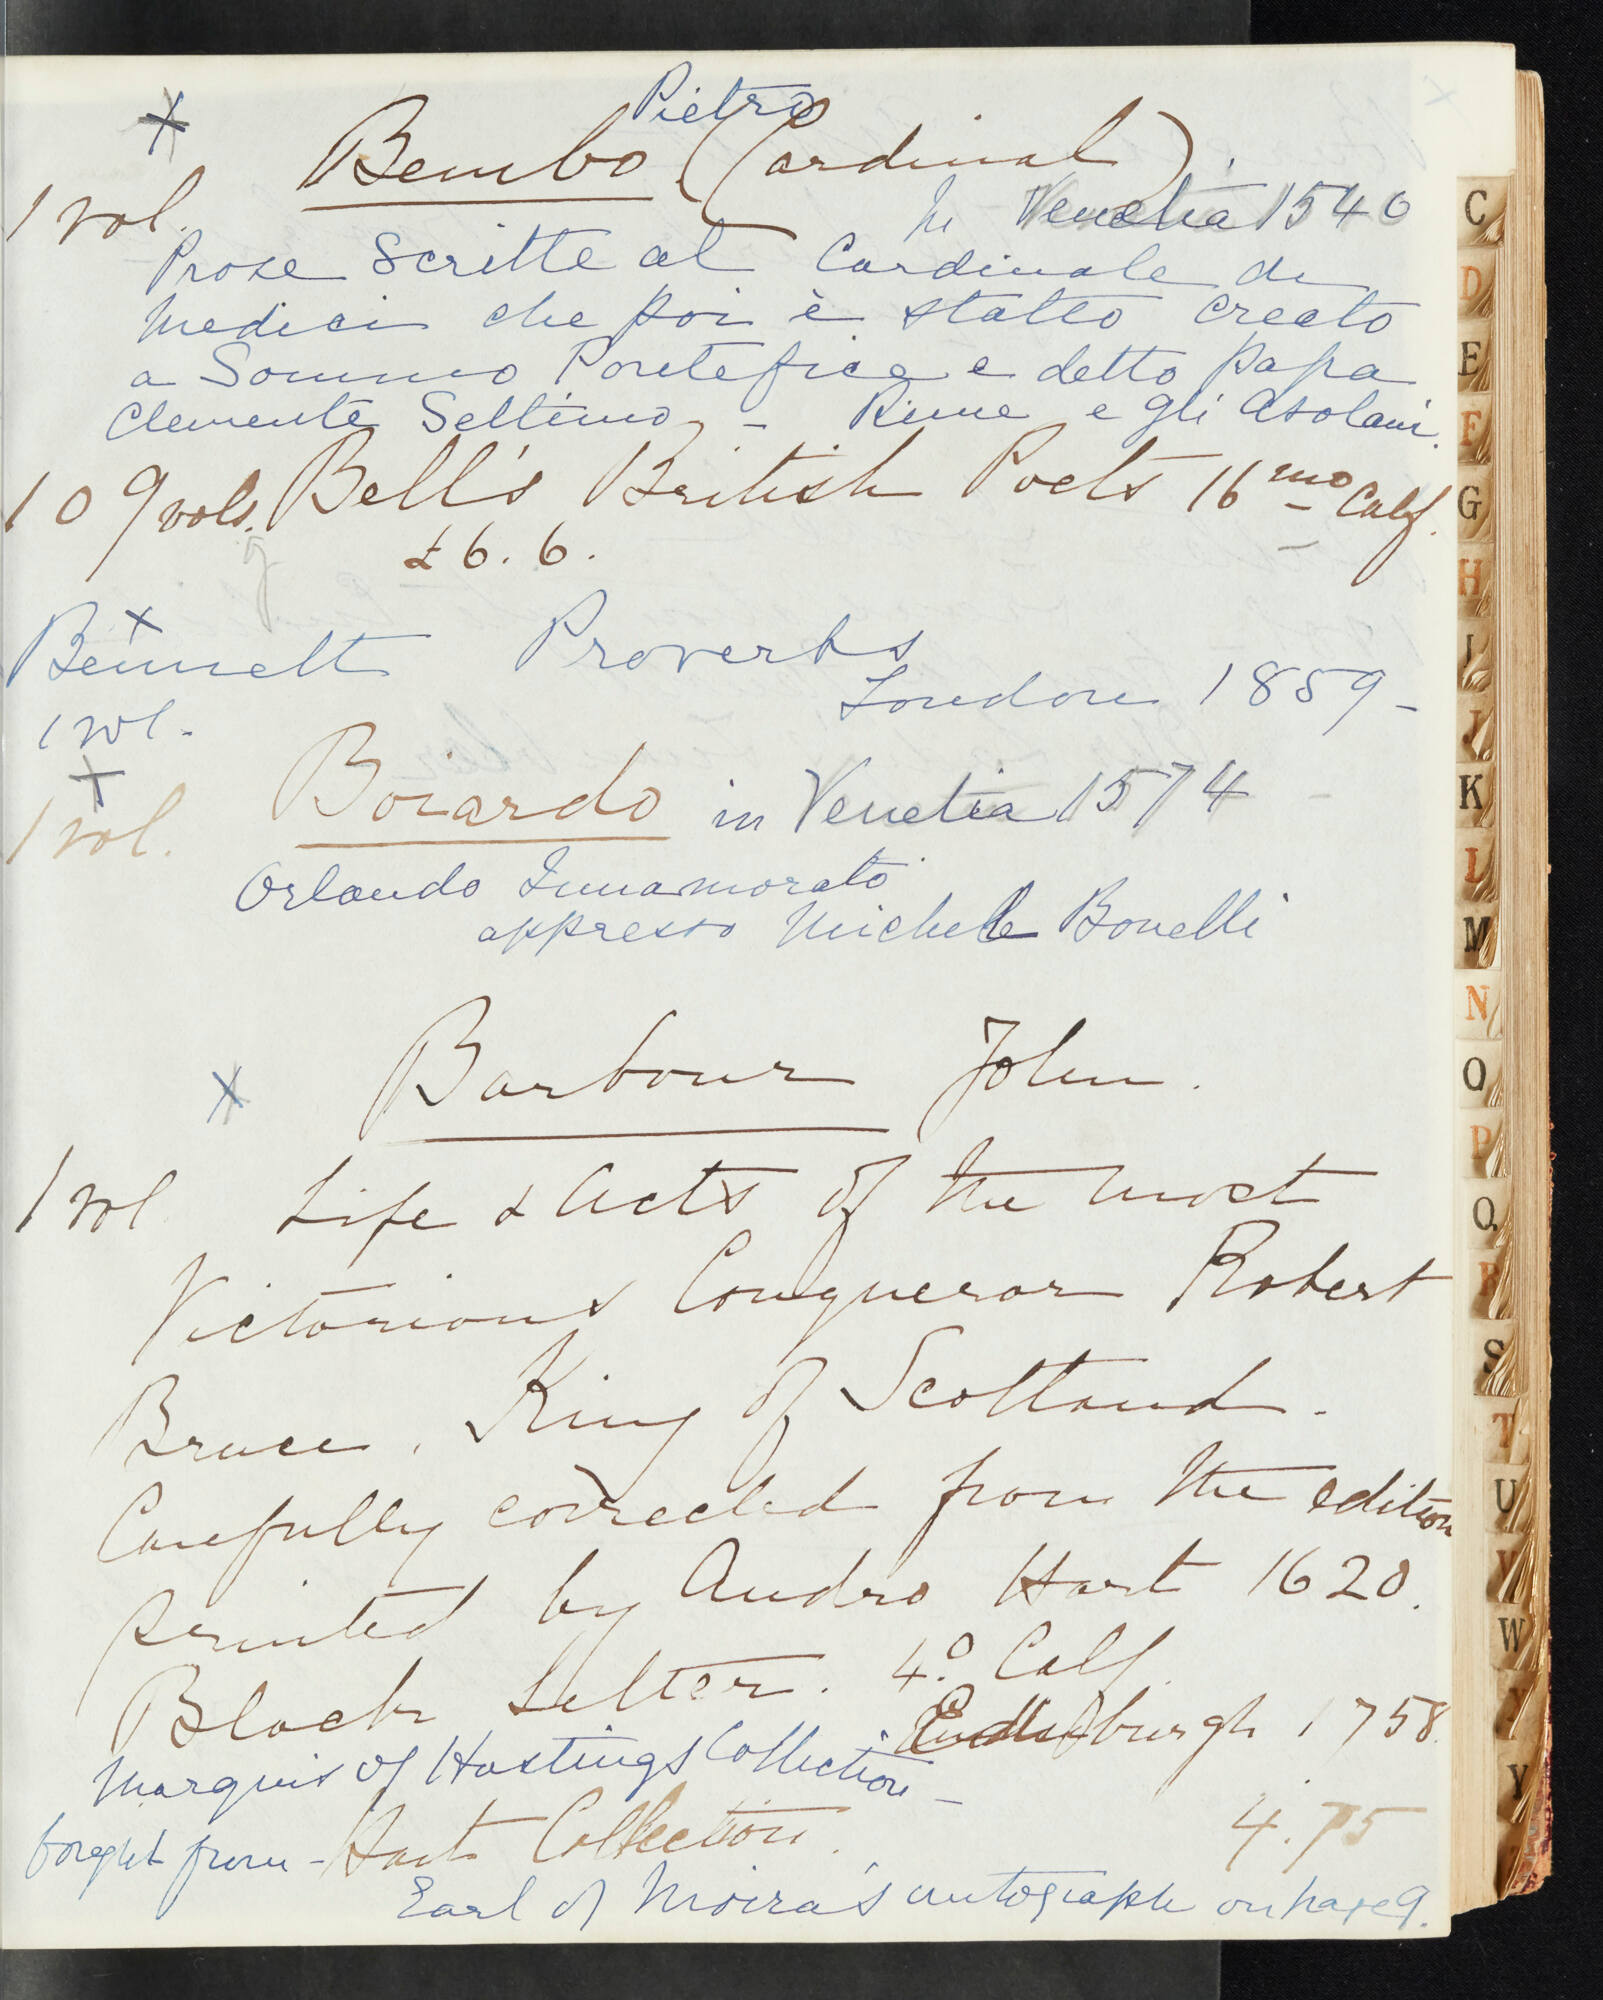 Pietro
Bembo (Cardinal).
1 vol. In Venetia 1540
Prose Scritte al Cardinale de
Medici che poi è statto creato
a Sommo Pontefice e detto papa
Clemente Settimo - Rime e gli Asolani.
109 vols. Bell's British Poets 16mo Calf.
£6.6.
Bennett Proverbs
London 1859-
1 vol.
1 vol. Boiardo in Venetia 1574
Orlando Innamorato
appresso Michele Bonelli
Barbour John.
1 vol Life & Acts of the most
Victorious Conqueror Robert
Bruce, King of Scotland.
Carefully corrected from the edition
printed by Andro Hart 1620.
Black Letter. 4.o Calf.
Edinburgh 1758.
Marquis of Hastings Collection -
bought from - Hart Collection. 4.75
Earl of Moira's autograph on page 9.
C
D
E
F
G
H
I
J
K
L
M
N
O
P
Q
R
S
T
U
V
W
X
Y